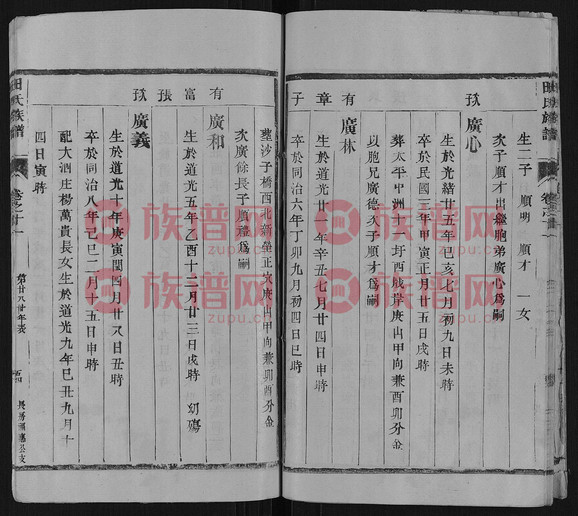 田氏族譜
生二子 順明 順才 一女
次子順才出繼胞弟廣心爲嗣
孩 廣心
生於光緒廿五年己亥七月初九日未時
卒於民國三年甲寅正月廿五日戌時
葬太平中洲十大圩酉賊岸庚山甲向兼酉卯分金
以胞兄廣德次子順才爲嗣
有章子 廣林
生於道光二十一年辛丑七月廿四日申時
卒於同治六年丁卯九月初四日巳時
葬沙子橋西北新塋正穴庚山甲向兼卯酉分金
次廣餘長子順種爲嗣
有富張孩 廣和
生於道光五年乙酉十二月廿三日戌時 幼殤
廣義
生於道光十年庚寅閏四月廿又日丑時
卒於同治八年己巳二月十五日申時
配大泗庄楊萬貴長女生於道光九年己丑九月十
四日寅時
田氏族譜
族谱网
zupu.cn